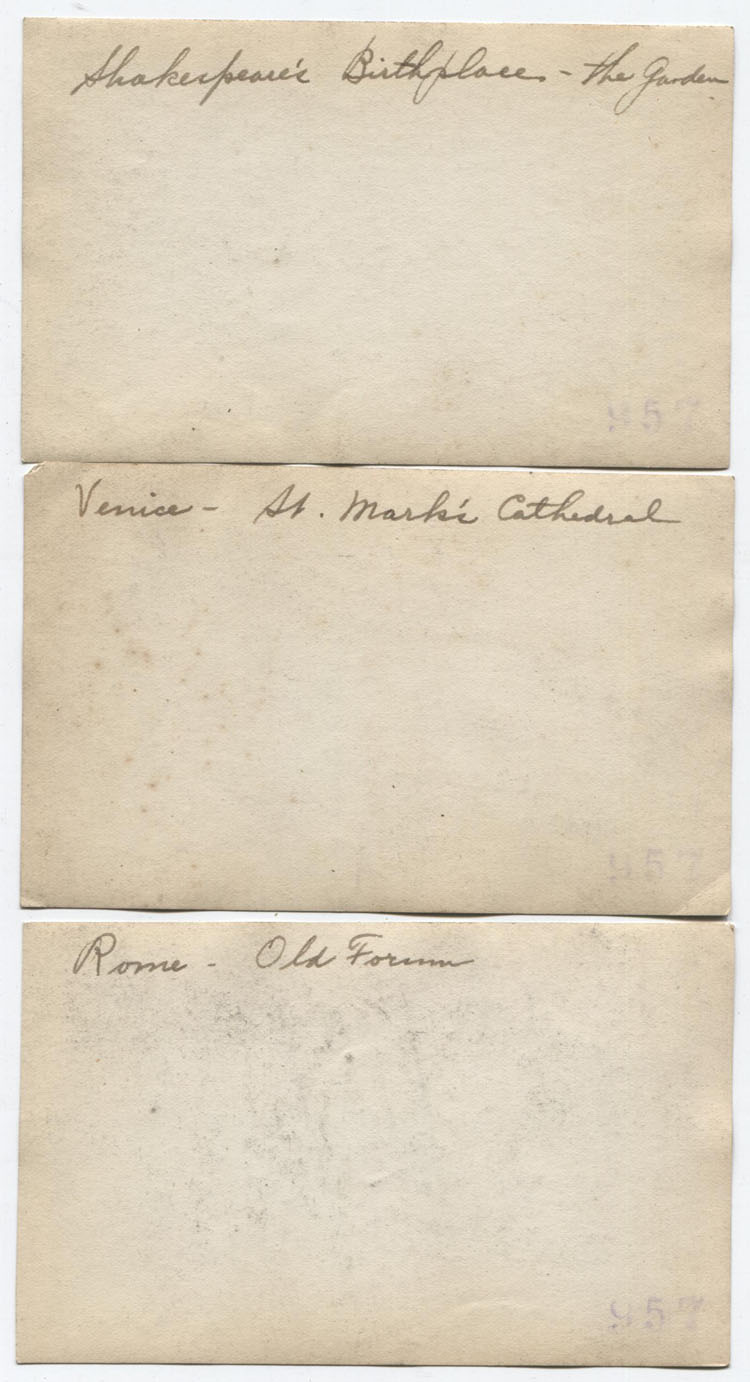 Shakespeare's Birthplace - The Garden
957
Venice - St. Mark's Cathedral
957
Rome - Old Forum
957